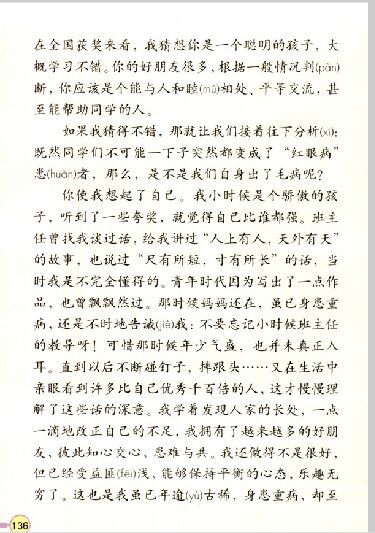 在全国获奖来看，我猜想你是一个聪明的孩子，大
概学习不错。你的好朋友很多，根据一般情况判(pàn)
断，你应该是个能与人和睦(mù)相处、平等交流，甚
至能帮助同学的人。
如果我猜得不错，那就让我们接着往下分析(xī)：
既然同学们不可能一下子突然都变成了“红眼病”
患(huàn)者，那么，是不是我们自身出了毛病呢？
你使我想起了自己。我小时候是个骄傲的孩
子，听到了一些夸奖，就觉得自己比谁都强。班主
任曾找我谈过话，给我讲过“人上有人，天外有天”
的故事，也说过“尺有所短，寸有所长”的话，当
时我是不完全懂得的。青年时代因为写出了一点作
品，也曾飘飘然过。那时候妈妈还在，虽已身患重
病，还是不时地告诫(jiè)我：不要忘记小时候班主任
的教导呀！可惜那时候年少气盛，也并未真正入
耳。直到以后不断碰钉子，摔跟头……又在生活中
亲眼看到许多比自己优秀千百倍的人，这才慢慢理
解了这些话的深意。我学着发现人家的长处，一点
一滴地改正自己的不足，我拥有了越来越多的好朋
友，彼此知心交心，患难与共。我还做得不是很好，
但已经受益匪(fěi)浅，能够保持平衡的心态，乐趣无
穷了。这也是我虽已年逾(yú)古稀，身患重病，却至
136